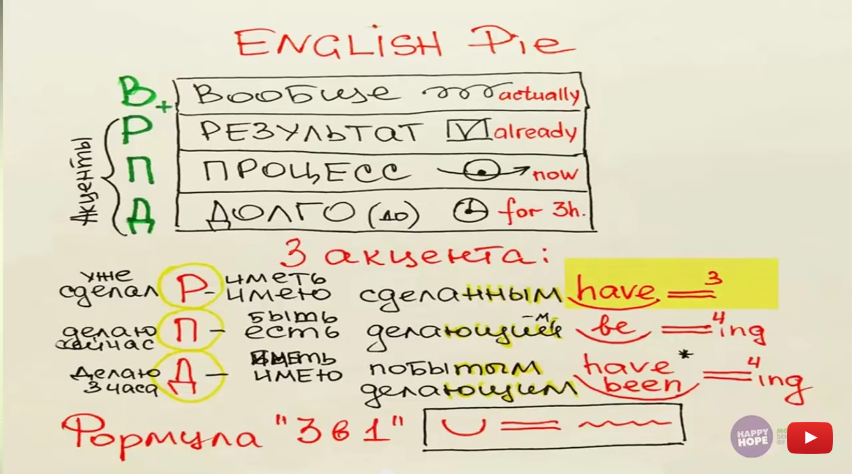 ENGLISH Pie
В + ВООбще actually
Р РЕЗУЛЬТАТ V already
П ПРОЦЕСС now
Д ДОЛГО (до) for 3h.
Акценты
3 акцента:
уже сделал Р - иметь имею сделанным have 3
делаю сейчас П - быть есть делающий -м be 4 ing
делаю 3 часа Д - иметь имею побытым делающим have been * 4 ing
Формула "3 в 1"
HAPPY HOPE